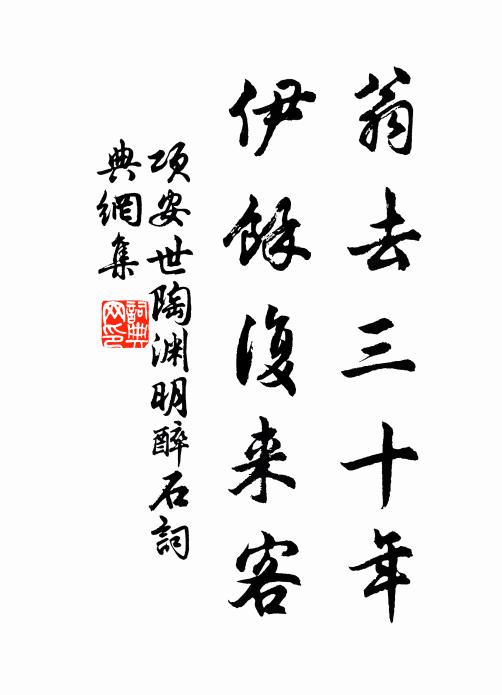 翁去三十年
伊餘復来客
項安世陶渊明醉石詞
典網集
詞典網印